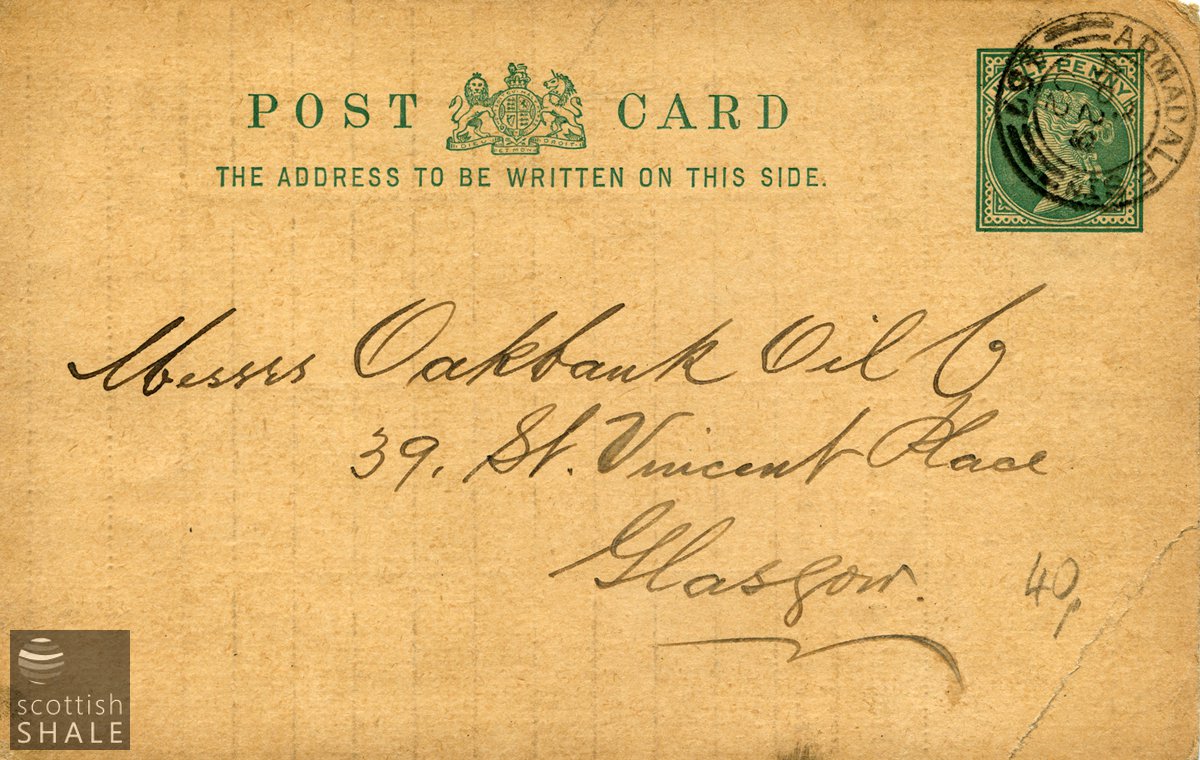 POST CARD
DIEU ET MON DROIT
THE ADDRESS TO BE WRITTEN ON THIS SIDE.
HALFPENNY
ARMADALE
Messrs Oakbank Oil Co
39, St. Vincent Place
Glasgow.
40p
scottish
SHALE